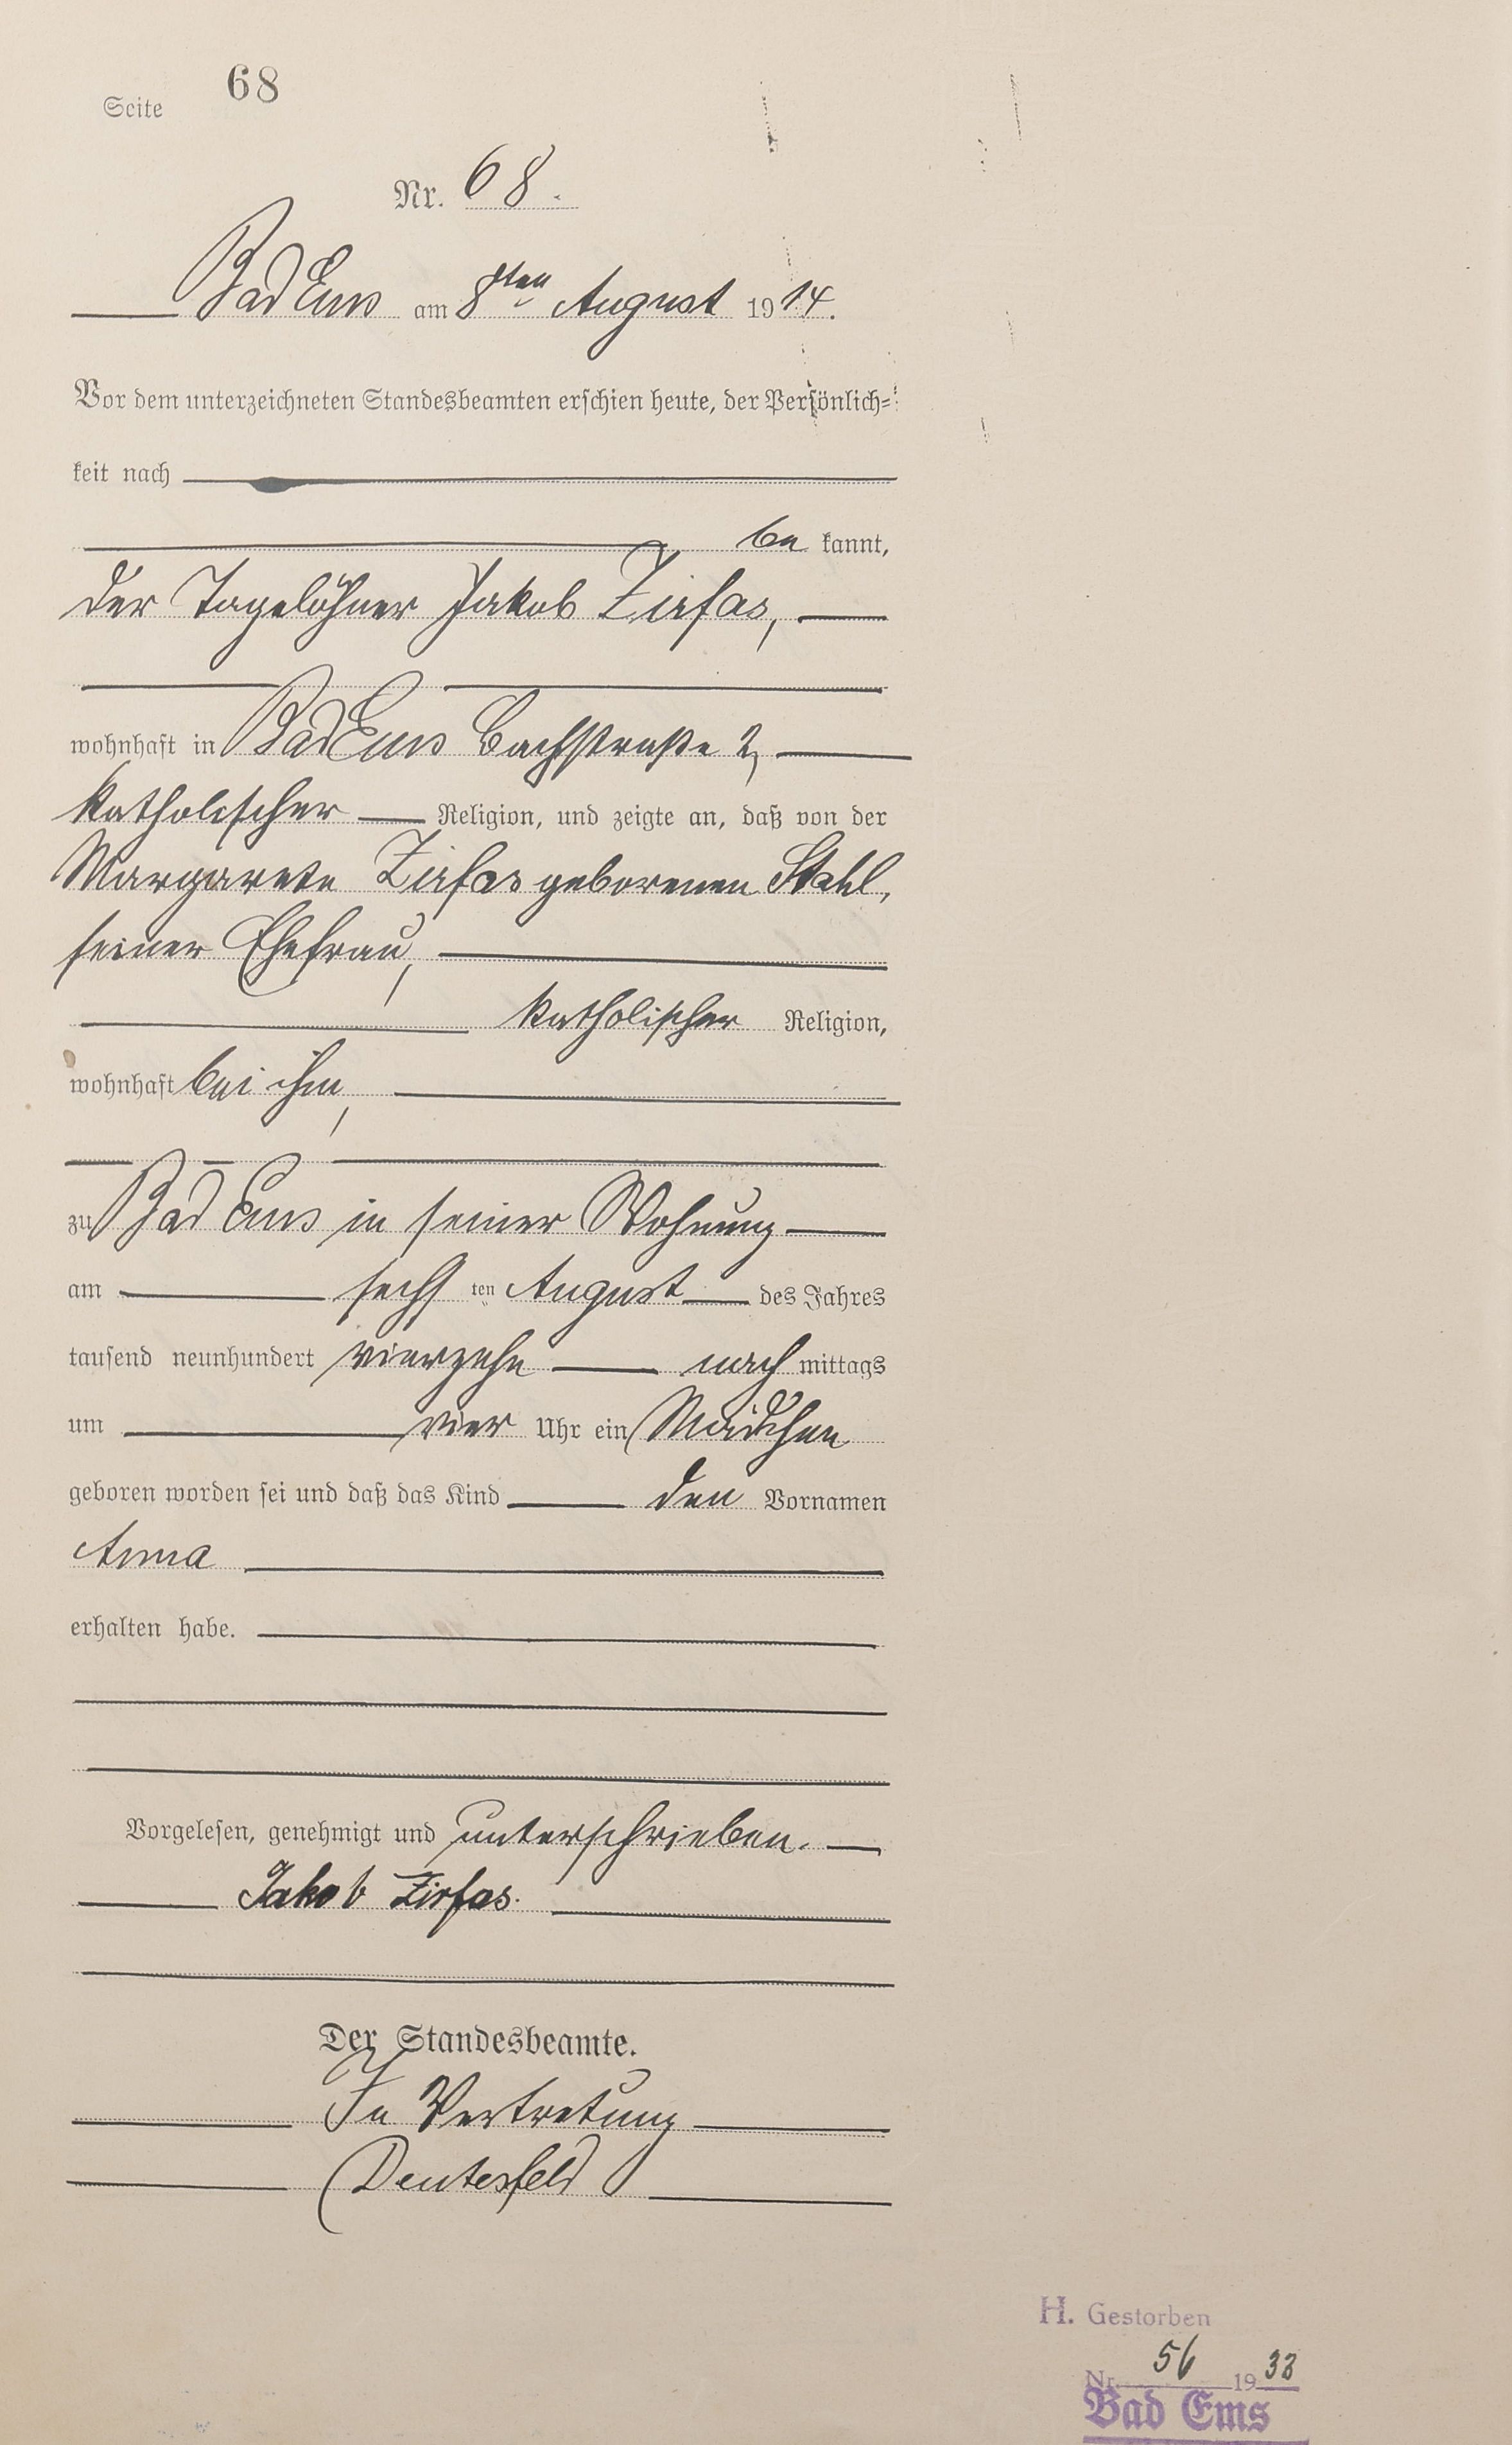 68
Seite
Nr. 68.
Bad Ems am 8ten August 1914.
Vor dem unterzeichneten Standesbeamten erschien heute, der Persönlich-
keit nach
be kannt,
der Tagelöhner Jakob Zirfas,
wohnhaft in Bad Ems Bachstraße 2,
katholischer Religion, und zeigte an, daß von der
Margarete Zirfas geborenen Stahl,
seiner Ehefrau,
katholischer Religion,
wohnhaft bei ihm,
zu Bad Ems in seiner Wohnung
am sechsten August des Jahres
tausend neunhundert vierzehn nachmittags
um vier Uhr ein Mädchen
geboren worden sei und daß das Kind den Vornamen
Anna
erhalten habe.
Vorgelesen, genehmigt und unterschrieben.
Jakob Zirfas.
Der Standesbeamte.
In Vertretung
H. Gestorben
Nr. 56 1938
Bad Ems